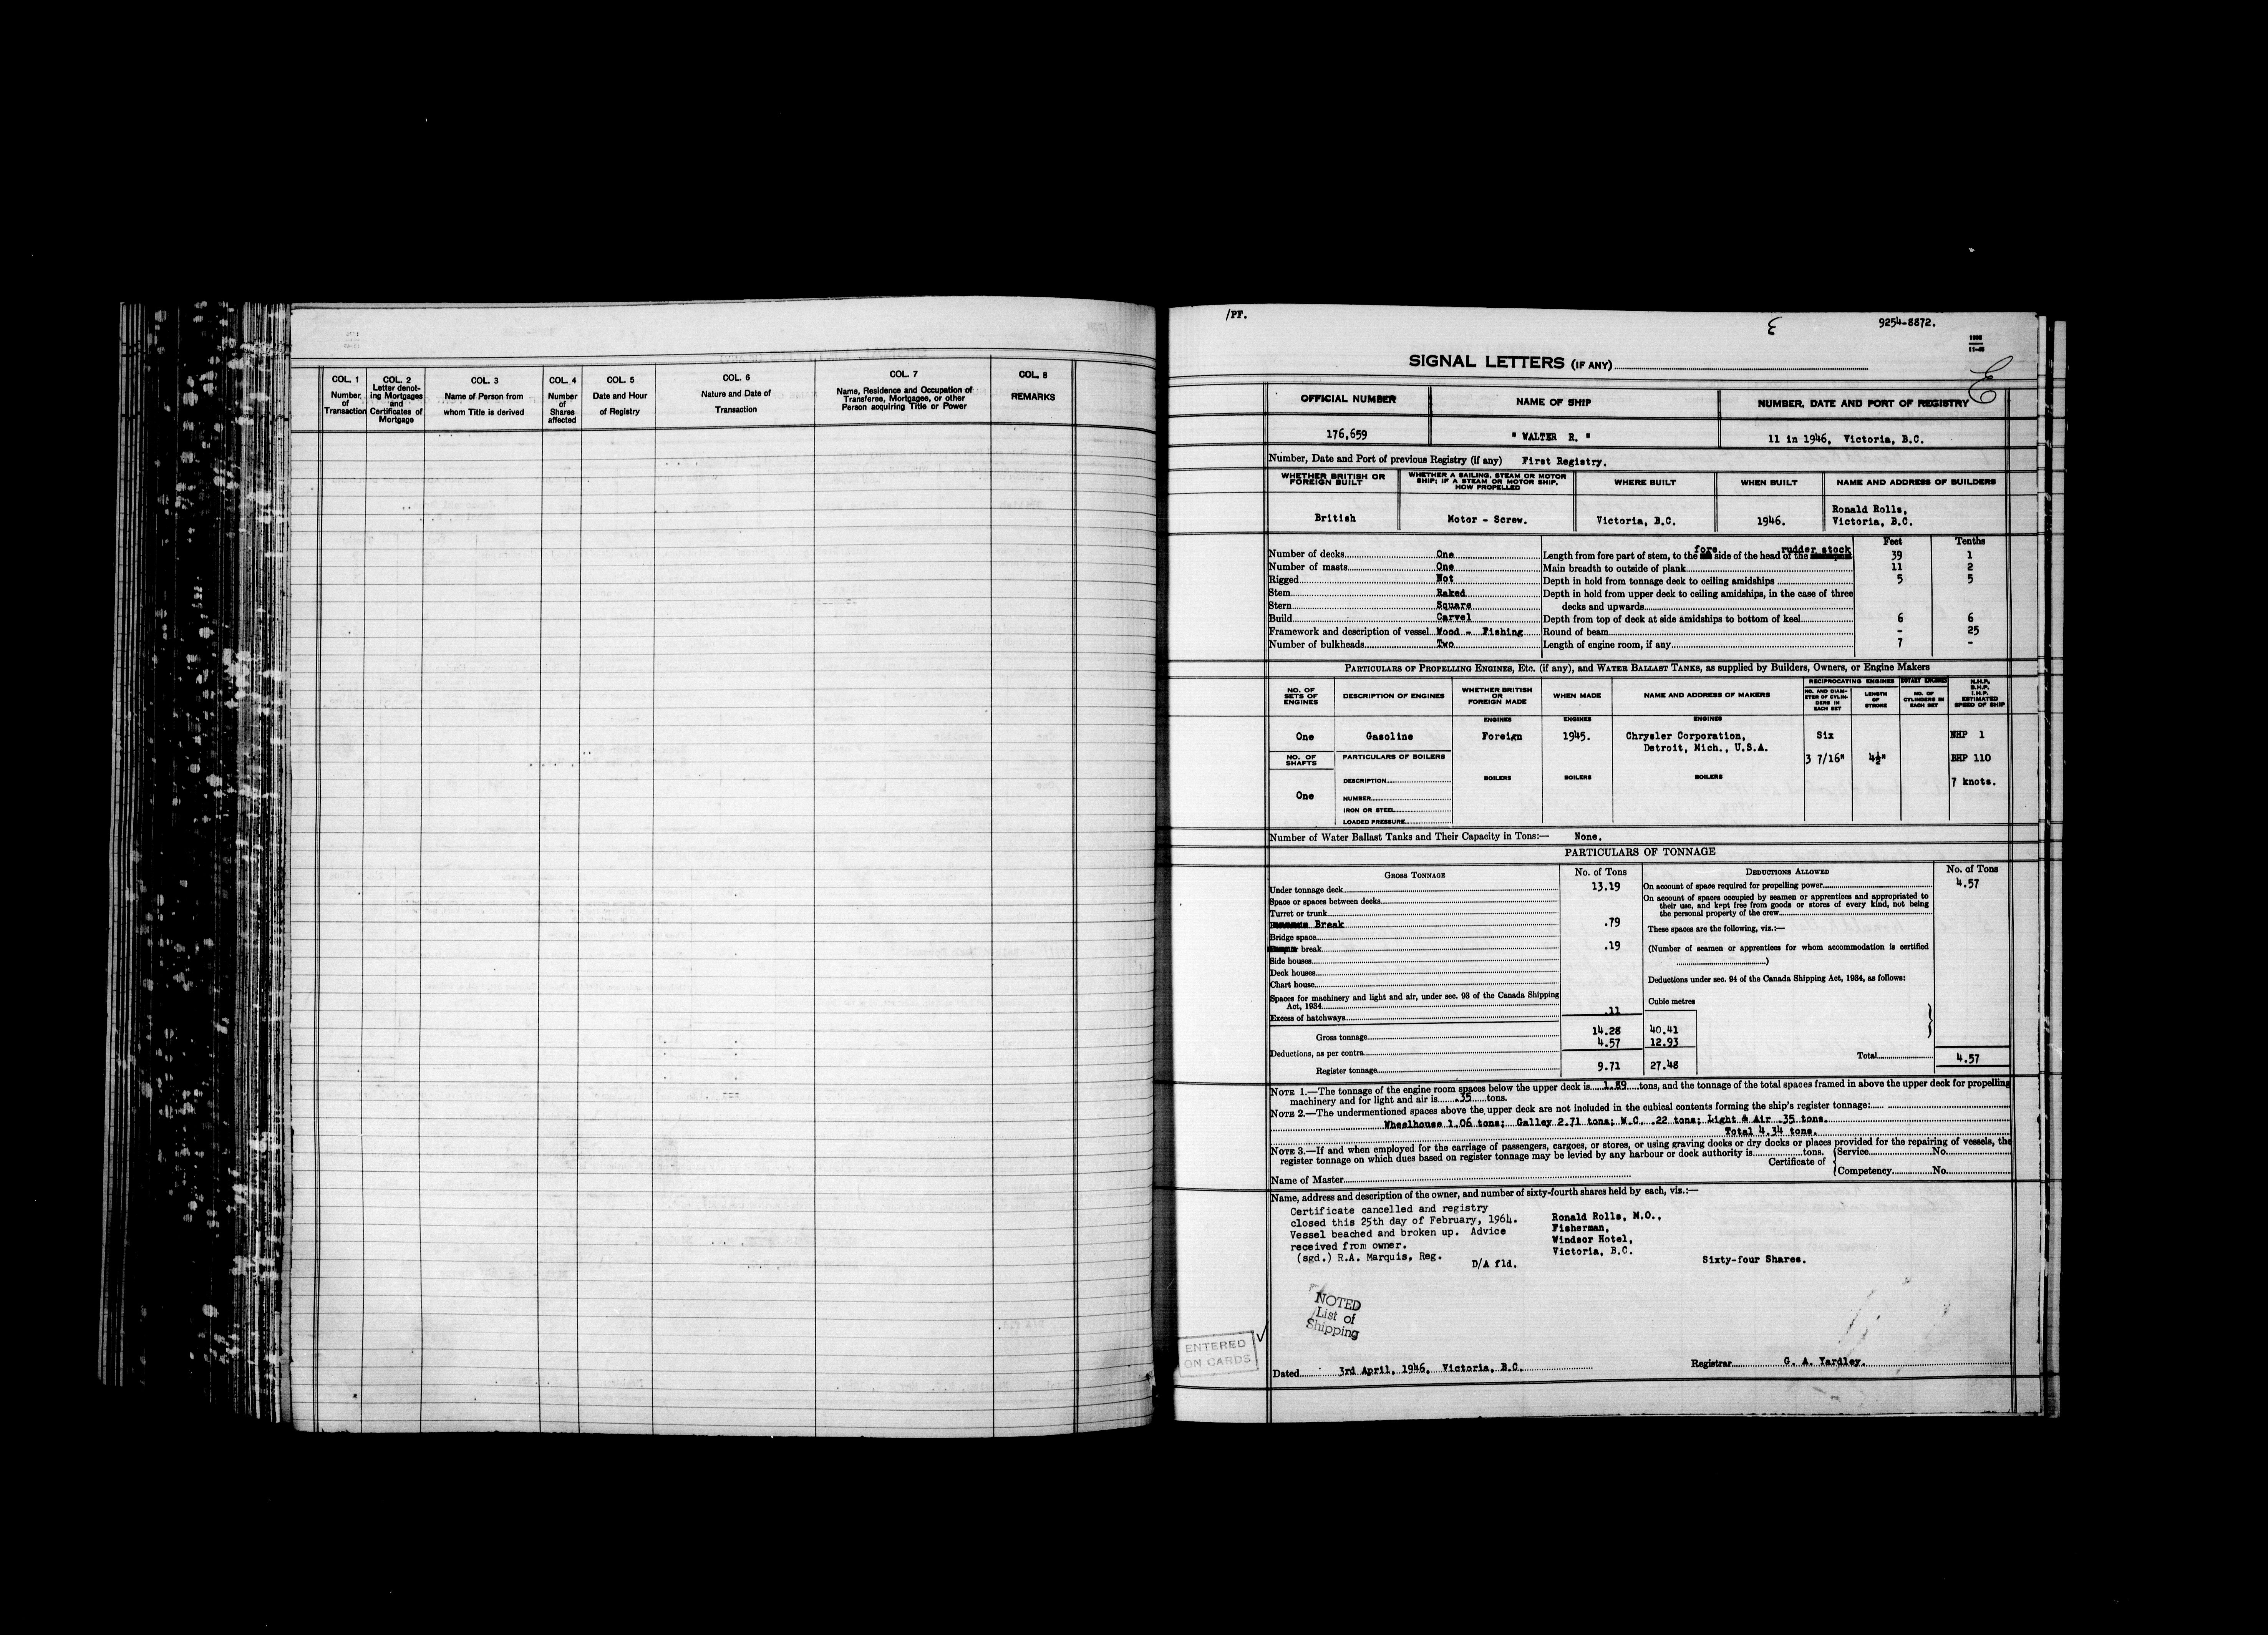 COL. 1
Number
of
Transaction
COL. 2
Letter denot-
ing Mortgages
and
Certificates of
Mortgage
COL. 3
Name of Person from
whom Title is derived
COL. 4
Number
of
Shares
affected
COL. 5
Date and Hour
of Registry
COL. 6
Nature and Date of
Transaction
COL. 7
Name, Residence and Occupation of
Transferee, Mortgagee, or other
Person acquiring Title or Power
COL. 8
REMARKS
/PF.
E
9254-8872.
SIGNAL LETTERS (IF ANY)
E
OFFICIAL NUMBER
NAME OF SHIP
NUMBER, DATE AND PORT OF REGISTRY
176,659
" WALTER R. "
11 in 1946, Victoria, B.C.
Number, Date and Port of previous Registry (if any) First Registry.
WHETHER BRITISH OR
FOREIGN BUILT
WHETHER A SAILING, STEAM OR MOTOR
SHIP; IF A STEAM OR MOTOR SHIP,
HOW PROPELLED
WHERE BUILT
WHEN BUILT
NAME AND ADDRESS OF BUILDERS
British
Motor - Screw.
Victoria, B.C.
1946.
Ronald Rolls,
Victoria, B.C.
Feet Tenths
Number of decks One
Number of masts One
Rigged Not
Stem Raked
Stern Square
Build Carvel
Framework and description of vessel Wood - Fishing
Number of bulkheads Two
Length from fore part of stem, to the fore side of the head of the rudder stock 39 1
Main breadth to outside of plank 11 2
Depth in hold from tonnage deck to ceiling amidships 5 5
Depth in hold from upper deck to ceiling amidships, in the case of three
decks and upwards
Depth from top of deck at side amidships to bottom of keel 6 6
Round of beam - 25
Length of engine room, if any 7 -
PARTICULARS OF PROPELLING ENGINES, ETC. (if any), and WATER BALLAST TANKS, as supplied by Builders, Owners, or Engine Makers
NO. OF
SETS OF
ENGINES
DESCRIPTION OF ENGINES
WHETHER BRITISH
OR
FOREIGN MADE
WHEN MADE
NAME AND ADDRESS OF MAKERS
RECIPROCATING ENGINES
NO. AND DIAM-
ETER OF CYLIN-
DERS IN
EACH SET
LENGTH
OF
STROKE
ROTARY ENGINES
NO. OF
CYLINDERS IN
EACH SET
N.H.P.
B.H.P.
I.H.P.
ESTIMATED
SPEED OF SHIP
ENGINES ENGINES ENGINES
One
Gasoline
Foreign
1945.
Chrysler Corporation,
Detroit, Mich., U.S.A.
Six
3 7/16"
4½"
NHP 1
BHP 110
7 knots.
NO. OF
SHAFTS
One
PARTICULARS OF BOILERS
DESCRIPTION
NUMBER
IRON OR STEEL
LOADED PRESSURE
BOILERS BOILERS BOILERS
Number of Water Ballast Tanks and Their Capacity in Tons:— None.
PARTICULARS OF TONNAGE
GROSS TONNAGE
No. of Tons
Under tonnage deck 13.19
Space or spaces between decks
Turret or trunk
Break .79
Bridge space
break .19
Side houses
Deck houses
Chart house
Spaces for machinery and light and air, under sec. 93 of the Canada Shipping
Act, 1934
Excess of hatchways .11
Gross tonnage 14.28 40.41
Deductions, as per contra 4.57 12.93
Register tonnage 9.71 27.48
DEDUCTIONS ALLOWED
No. of Tons
On account of space required for propelling power 4.57
On account of spaces occupied by seamen or apprentices and appropriated to
their use, and kept free from goods or stores of every kind, not being
the personal property of the crew
These spaces are the following, viz.:—
(Number of seamen or apprentices for whom accommodation is certified
)
Deductions under sec. 94 of the Canada Shipping Act, 1934, as follows:
Cubic metres
Total 4.57
NOTE 1.—The tonnage of the engine room spaces below the upper deck is 1.89 tons, and the tonnage of the total spaces framed in above the upper deck for propelling
machinery and for light and air is .35 tons.
NOTE 2.—The undermentioned spaces above the upper deck are not included in the cubical contents forming the ship's register tonnage:
Wheelhouse 1.06 tons; Galley 2.71 tons; W.C. .22 tons; Light & Air .35 tons.
Total 4.34 tons.
NOTE 3.—If and when employed for the carriage of passengers, cargoes, or stores, or using graving docks or dry docks or places provided for the repairing of vessels, the
register tonnage on which dues based on register tonnage may be levied by any harbour or dock authority is tons.
Certificate of
Service No.
Competency No.
Name of Master
Name, address and description of the owner, and number of sixty-fourth shares held by each, viz.:—
Certificate cancelled and registry
closed this 25th day of February, 1964.
Vessel beached and broken up. Advice
received from owner.
(sgd.) R.A. Marquis, Reg.
D/A fld.
Ronald Rolls, M.O.,
Fisherman,
Windsor Hotel,
Victoria, B.C.
Sixty-four Shares.
NOTED
List of
Shipping
ENTERED
ON CARDS
Dated 3rd April, 1946, Victoria, B.C.
Registrar G. A. Yardley.